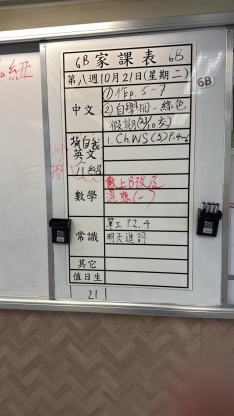 6B 家課表 6B
第八週10月21日(星期二)
中文
①作p.5-7
②自學冊-綠色
假期(23/10交)
英文
1. Ch.WS (3) p.4-6
數學
數上B改及
常識
單工 P.2,4
明天進評
其它
值日生
21
6B